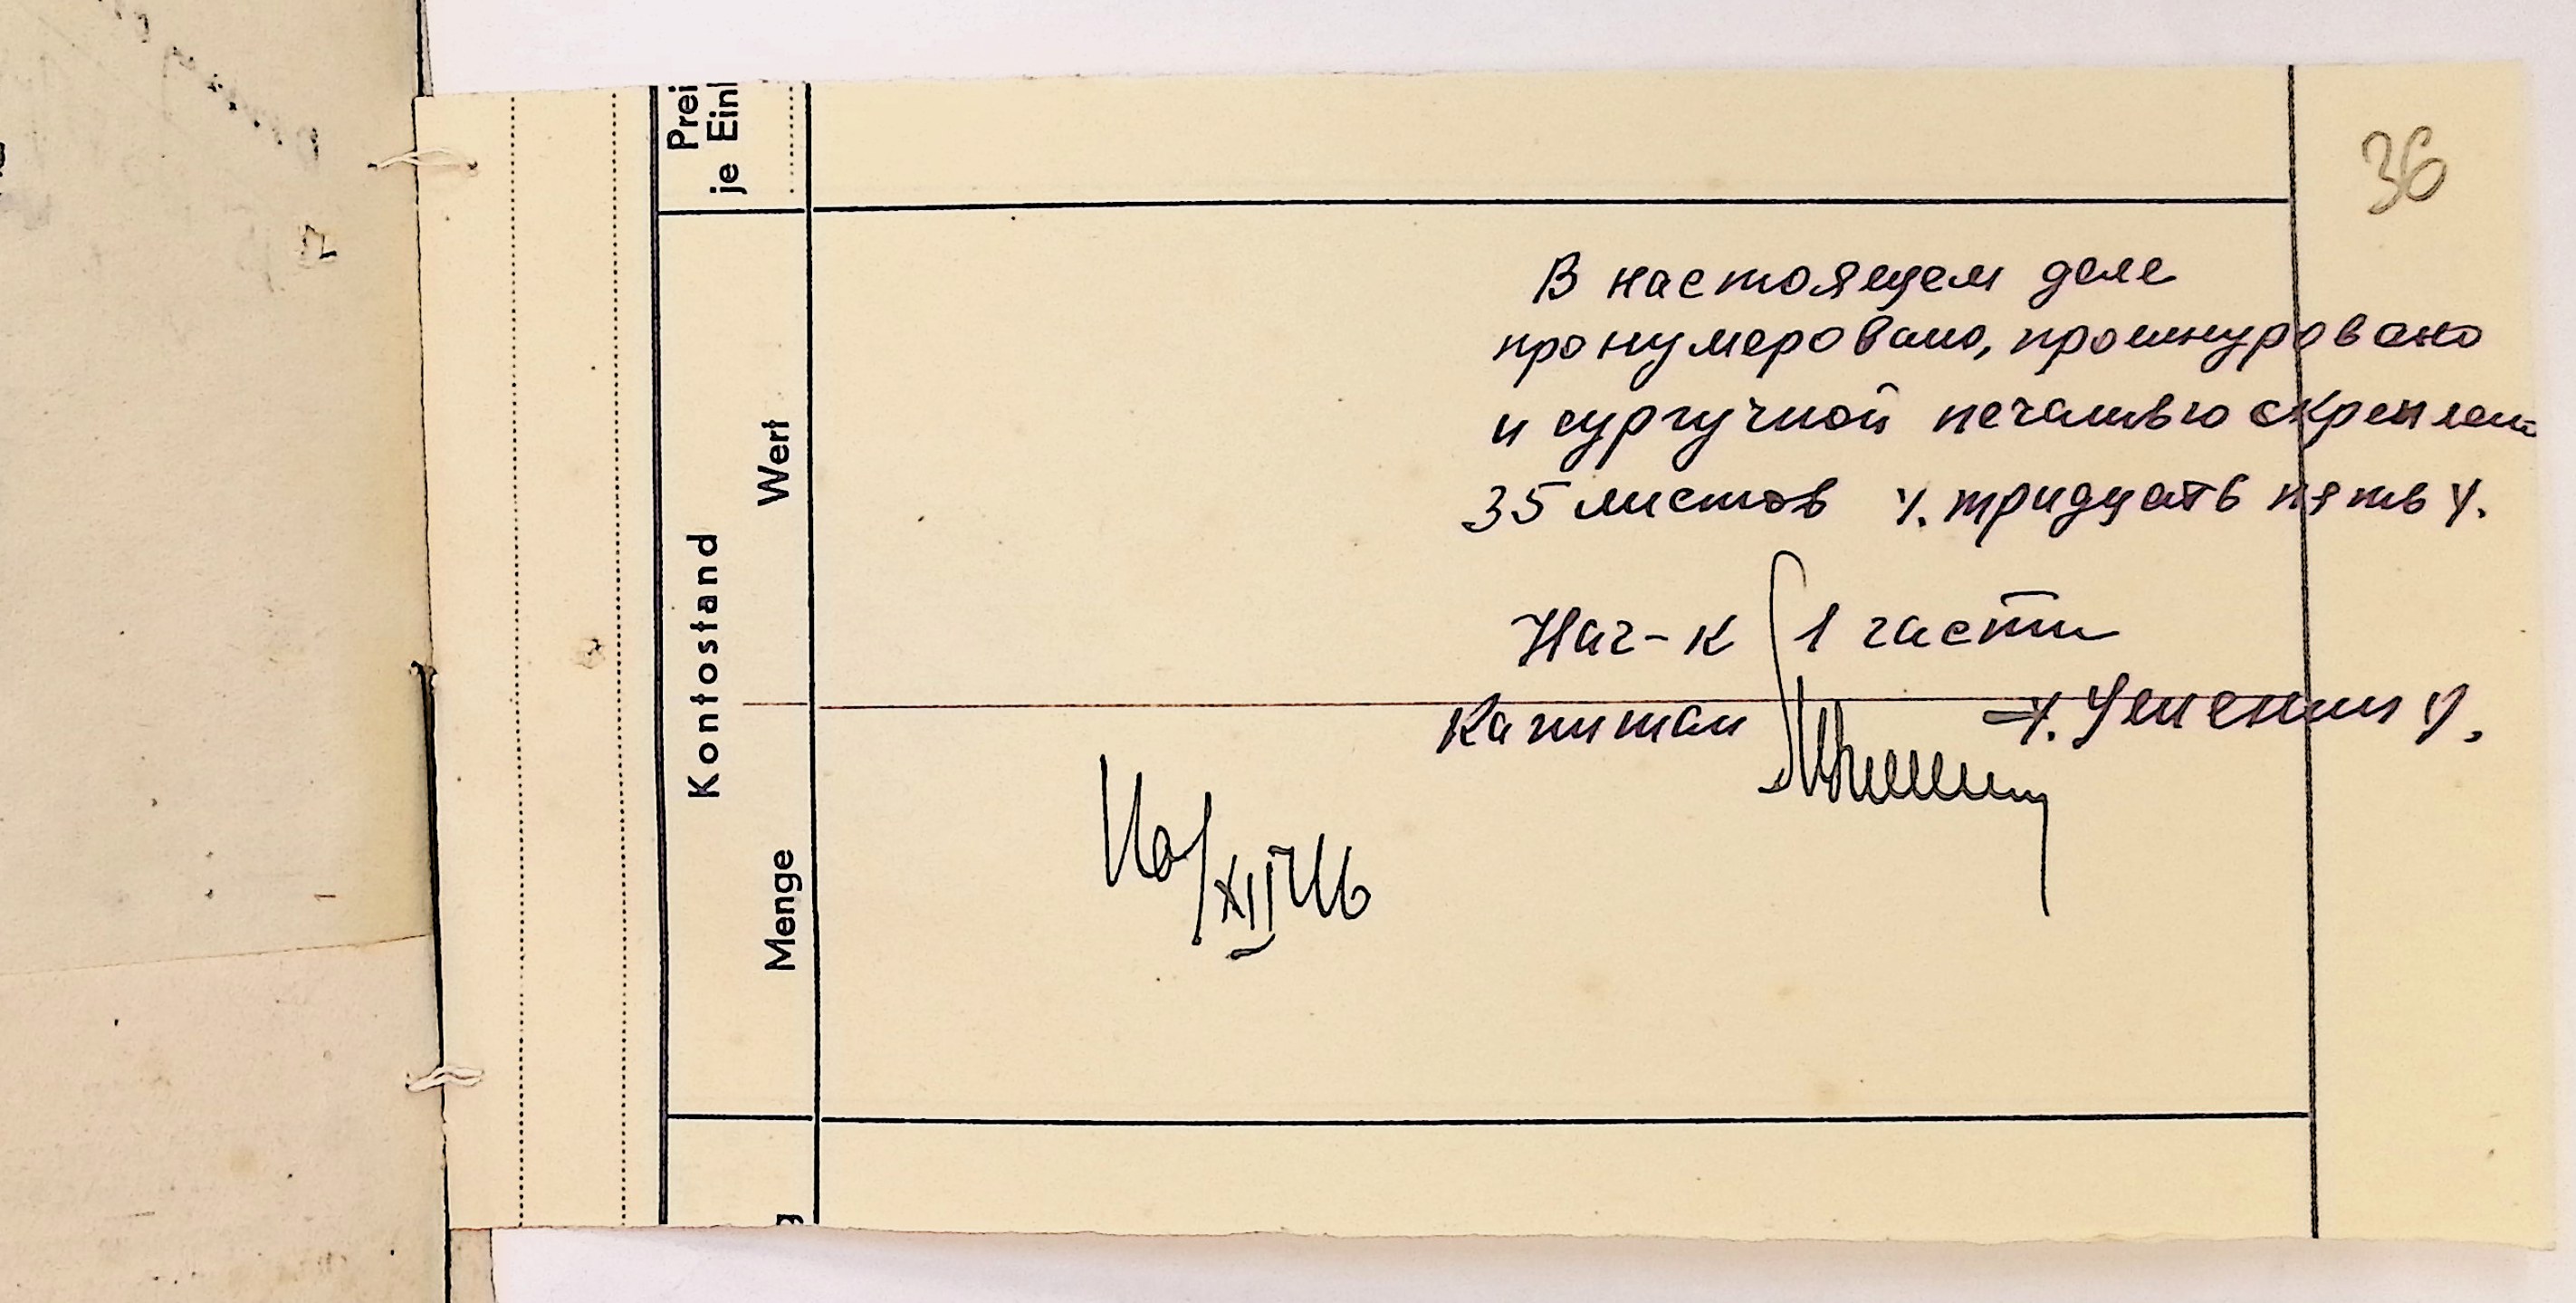 36
В настоящем деле
пронумеровано, прошнуровано
и сургучной печатью скреплено
35 листов /. тридцать пять /.
Нач-к 1 части
Капитан
XII 46
Prei
je Einl
Kontostand
Wert
Menge
g